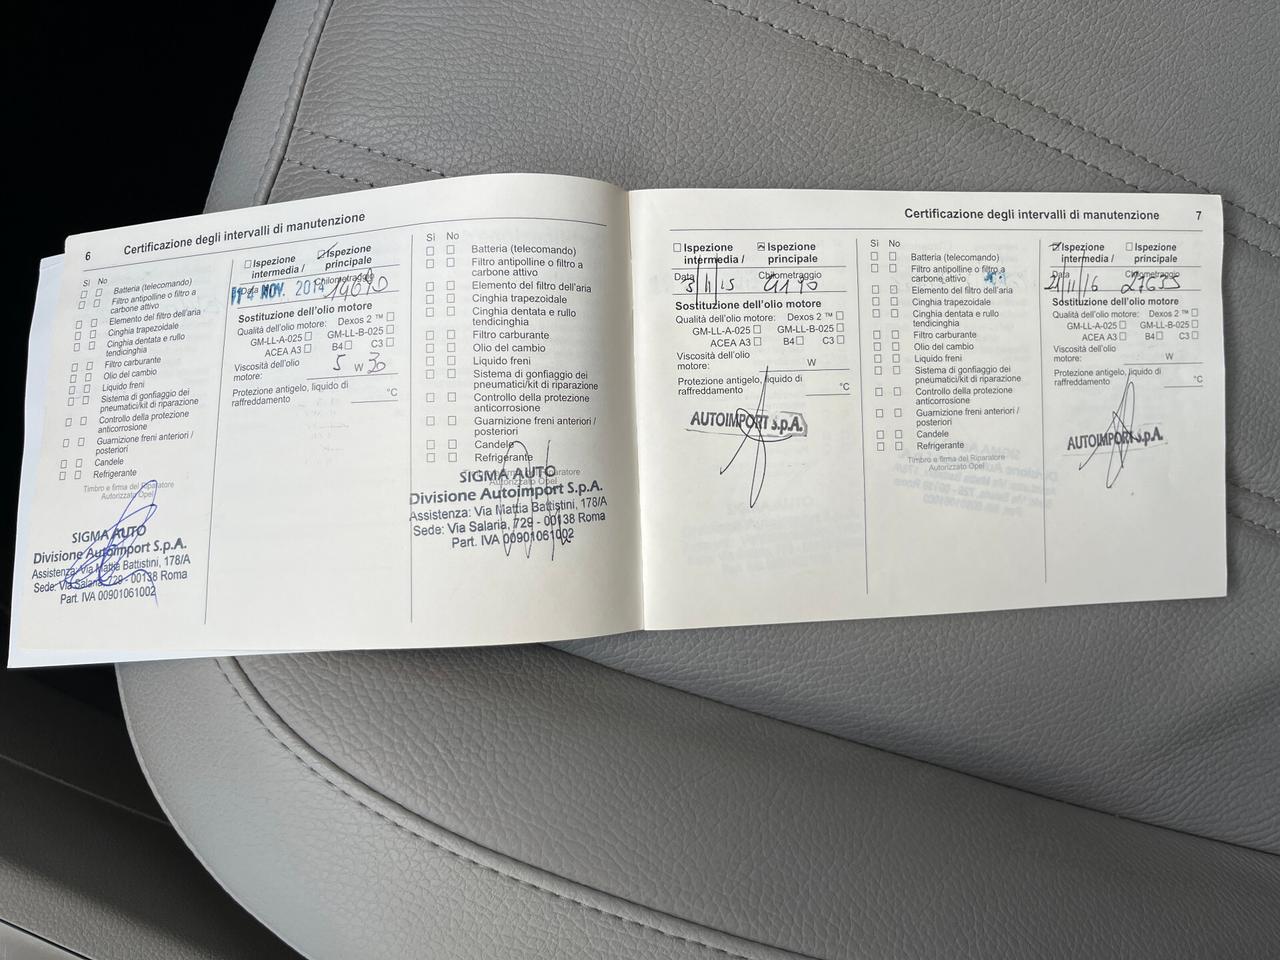 6 Certificazione degli intervalli di manutenzione
Si No
Batteria (telecomando)
Filtro antipolline o filtro a
carbone attivo
Elemento del filtro dell'aria
Cinghia trapezoidale
Cinghia dentata e rullo
tendicinghia
Filtro carburante
Olio del cambio
Liquido freni
Sistema di gonfiaggio dei
pneumatici/kit di riparazione
Controllo della protezione
anticorrosione
Guarnizione freni anteriori /
posteriori
Candele
Refrigerante
Timbro e firma del Riparatore
Autorizzato Opel
SIGMA AUTO
Divisione Autoimport S.p.A.
Assistenza: Via Mattia Battistini, 178/A
Sede: Via Salaria, 729 - 00138 Roma
Part. IVA 00901061002
Ispezione intermedia / Ispezione principale
Data Chilometraggio
NOV. 2014
Sostituzione dell'olio motore
Qualità dell'olio motore: Dexos 2 ™
GM-LL-A-025 GM-LL-B-025
ACEA A3 B4 C3
Viscosità dell'olio
motore: 5 W 30
Protezione antigelo, liquido di
raffreddamento °C
Si No
Batteria (telecomando)
Filtro antipolline o filtro a
carbone attivo
Elemento del filtro dell'aria
Cinghia trapezoidale
Cinghia dentata e rullo
tendicinghia
Filtro carburante
Olio del cambio
Liquido freni
Sistema di gonfiaggio dei
pneumatici/kit di riparazione
Controllo della protezione
anticorrosione
Guarnizione freni anteriori /
posteriori
Candele
Refrigerante
Timbro e firma del Riparatore
Autorizzato Opel
SIGMA AUTO
Divisione Autoimport S.p.A.
Assistenza: Via Mattia Battistini, 178/A
Sede: Via Salaria, 729 - 00138 Roma
Part. IVA 00901061002
Certificazione degli intervalli di manutenzione 7
Ispezione intermedia / Ispezione principale
Data Chilometraggio
Sostituzione dell'olio motore
Qualità dell'olio motore: Dexos 2 ™
GM-LL-A-025 GM-LL-B-025
ACEA A3 B4 C3
Viscosità dell'olio
motore: W
Protezione antigelo, liquido di
raffreddamento °C
AUTOIMPORT S.p.A.
Si No
Batteria (telecomando)
Filtro antipolline o filtro a
carbone attivo
Elemento del filtro dell'aria
Cinghia trapezoidale
Cinghia dentata e rullo
tendicinghia
Filtro carburante
Olio del cambio
Liquido freni
Sistema di gonfiaggio dei
pneumatici/kit di riparazione
Controllo della protezione
anticorrosione
Guarnizione freni anteriori /
posteriori
Candele
Refrigerante
Timbro e firma del Riparatore
Autorizzato Opel
Ispezione intermedia / Ispezione principale
Data Chilometraggio
27655
Sostituzione dell'olio motore
Qualità dell'olio motore: Dexos 2 ™
GM-LL-A-025 GM-LL-B-025
ACEA A3 B4 C3
Viscosità dell'olio
motore: W
Protezione antigelo, liquido di
raffreddamento °C
AUTOIMPORT S.p.A.